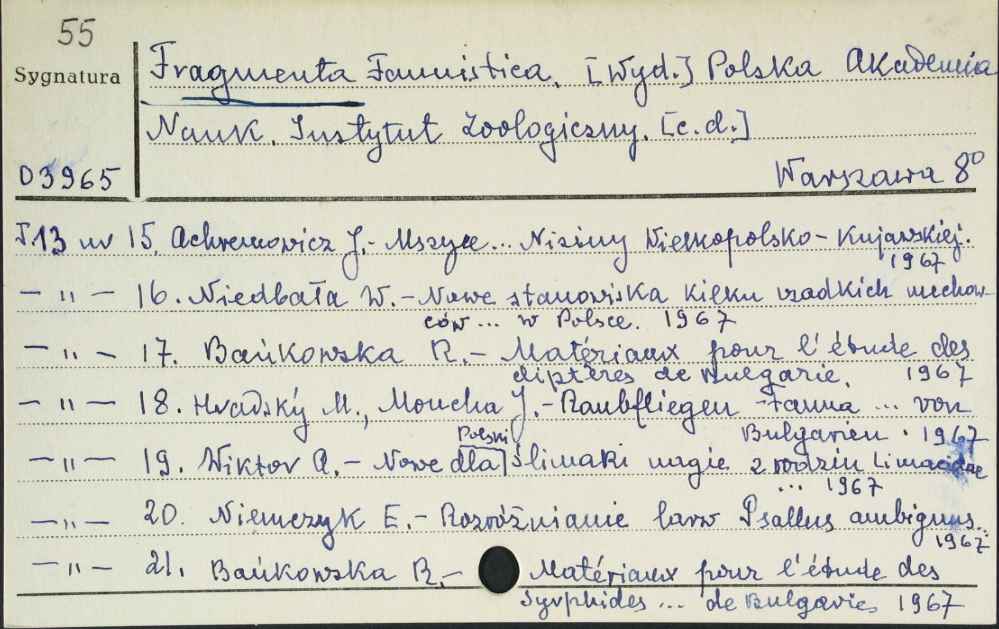 55
Sygnatura
Fragmenta Faunistica. [Wyd.] Polska Akademia
Nauk. Instytut Zoologiczny. [c.d.]
03965
Warszawa 8°
T 13 nr 15. Achremowicz J.- Mszyce... Niziny Wielkopolsko-Kujawskiej.
1967
— " — 16. Niedbała W.- Nowe stanowiska kilku rzadkich mechow
ców... w Polsce. 1967
— " — 17. Bańkowska R.- Matériaux pour l'étude des
diptères de Bulgarie. 1967
— " — 18. Hradský M., Moucha J.- Raubfliegen-Fauna ... von
Bulgarien. 1967
Polski
— " — 19. Wiktor A.- Nowe dla ślimaki nagie z rodzin Limacidae
... 1967
— " — 20. Niemczyk E.- Rozróżnianie larw Psallus ambiguus..
1967
— " — 21. Bańkowska R.- Matériaux pour l'étude des
Syrphides ... de Bulgarie 1967